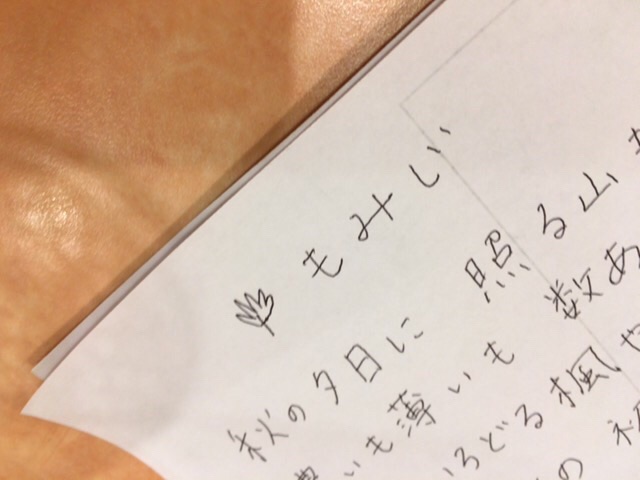 もみじ
秋の夕日に 照る山
いも薄いも 数あ
ろどる楓
の